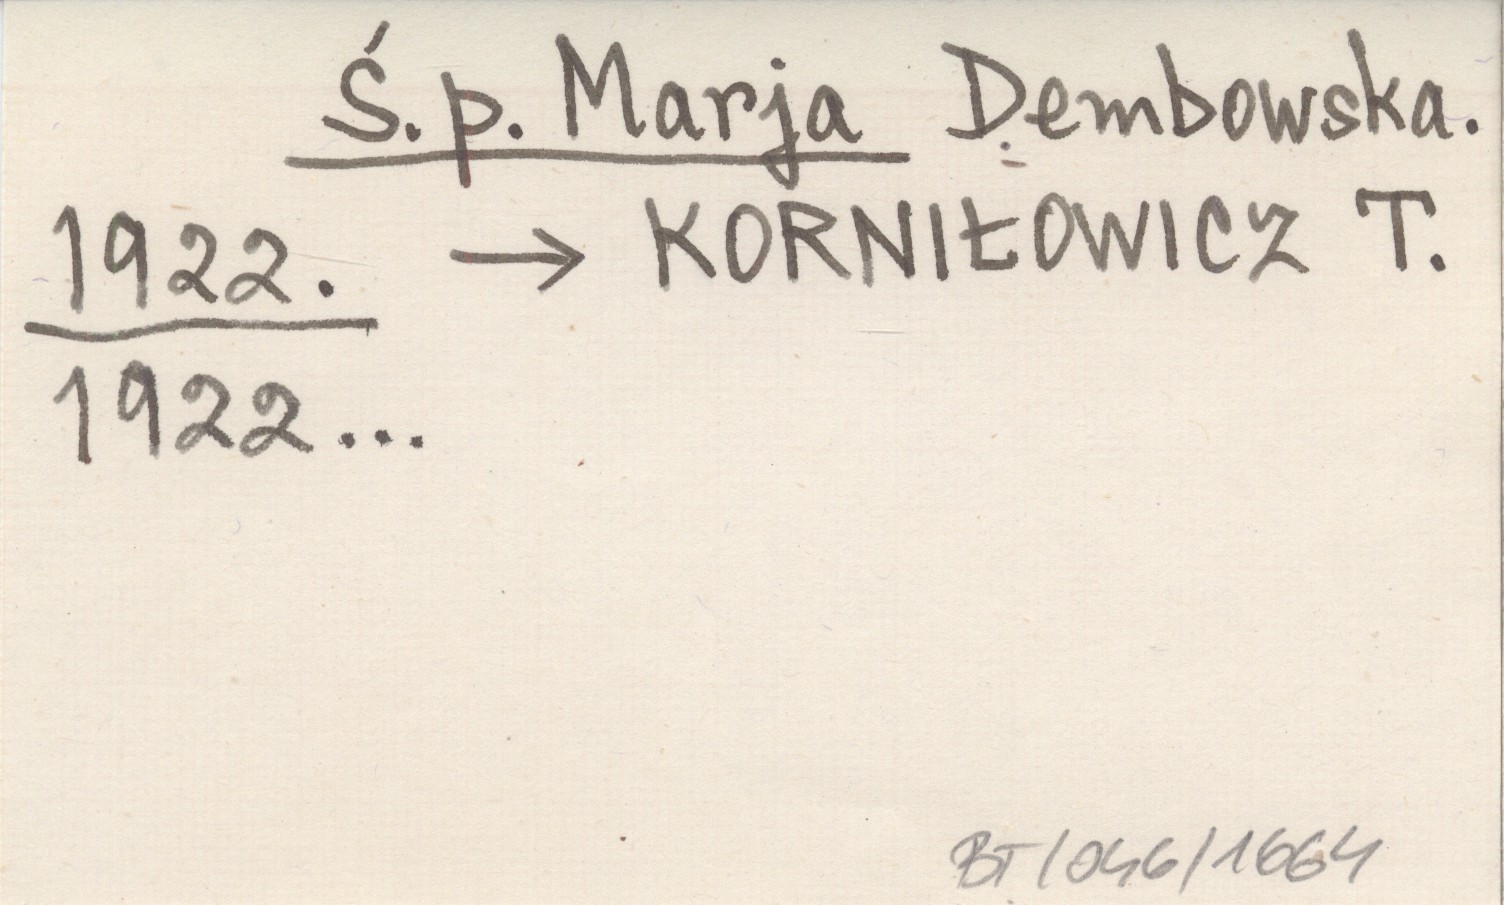 Ś.p. Marja Dembowska.
1922. → KORNIŁOWICZ T.
1922...
BT/046/1664